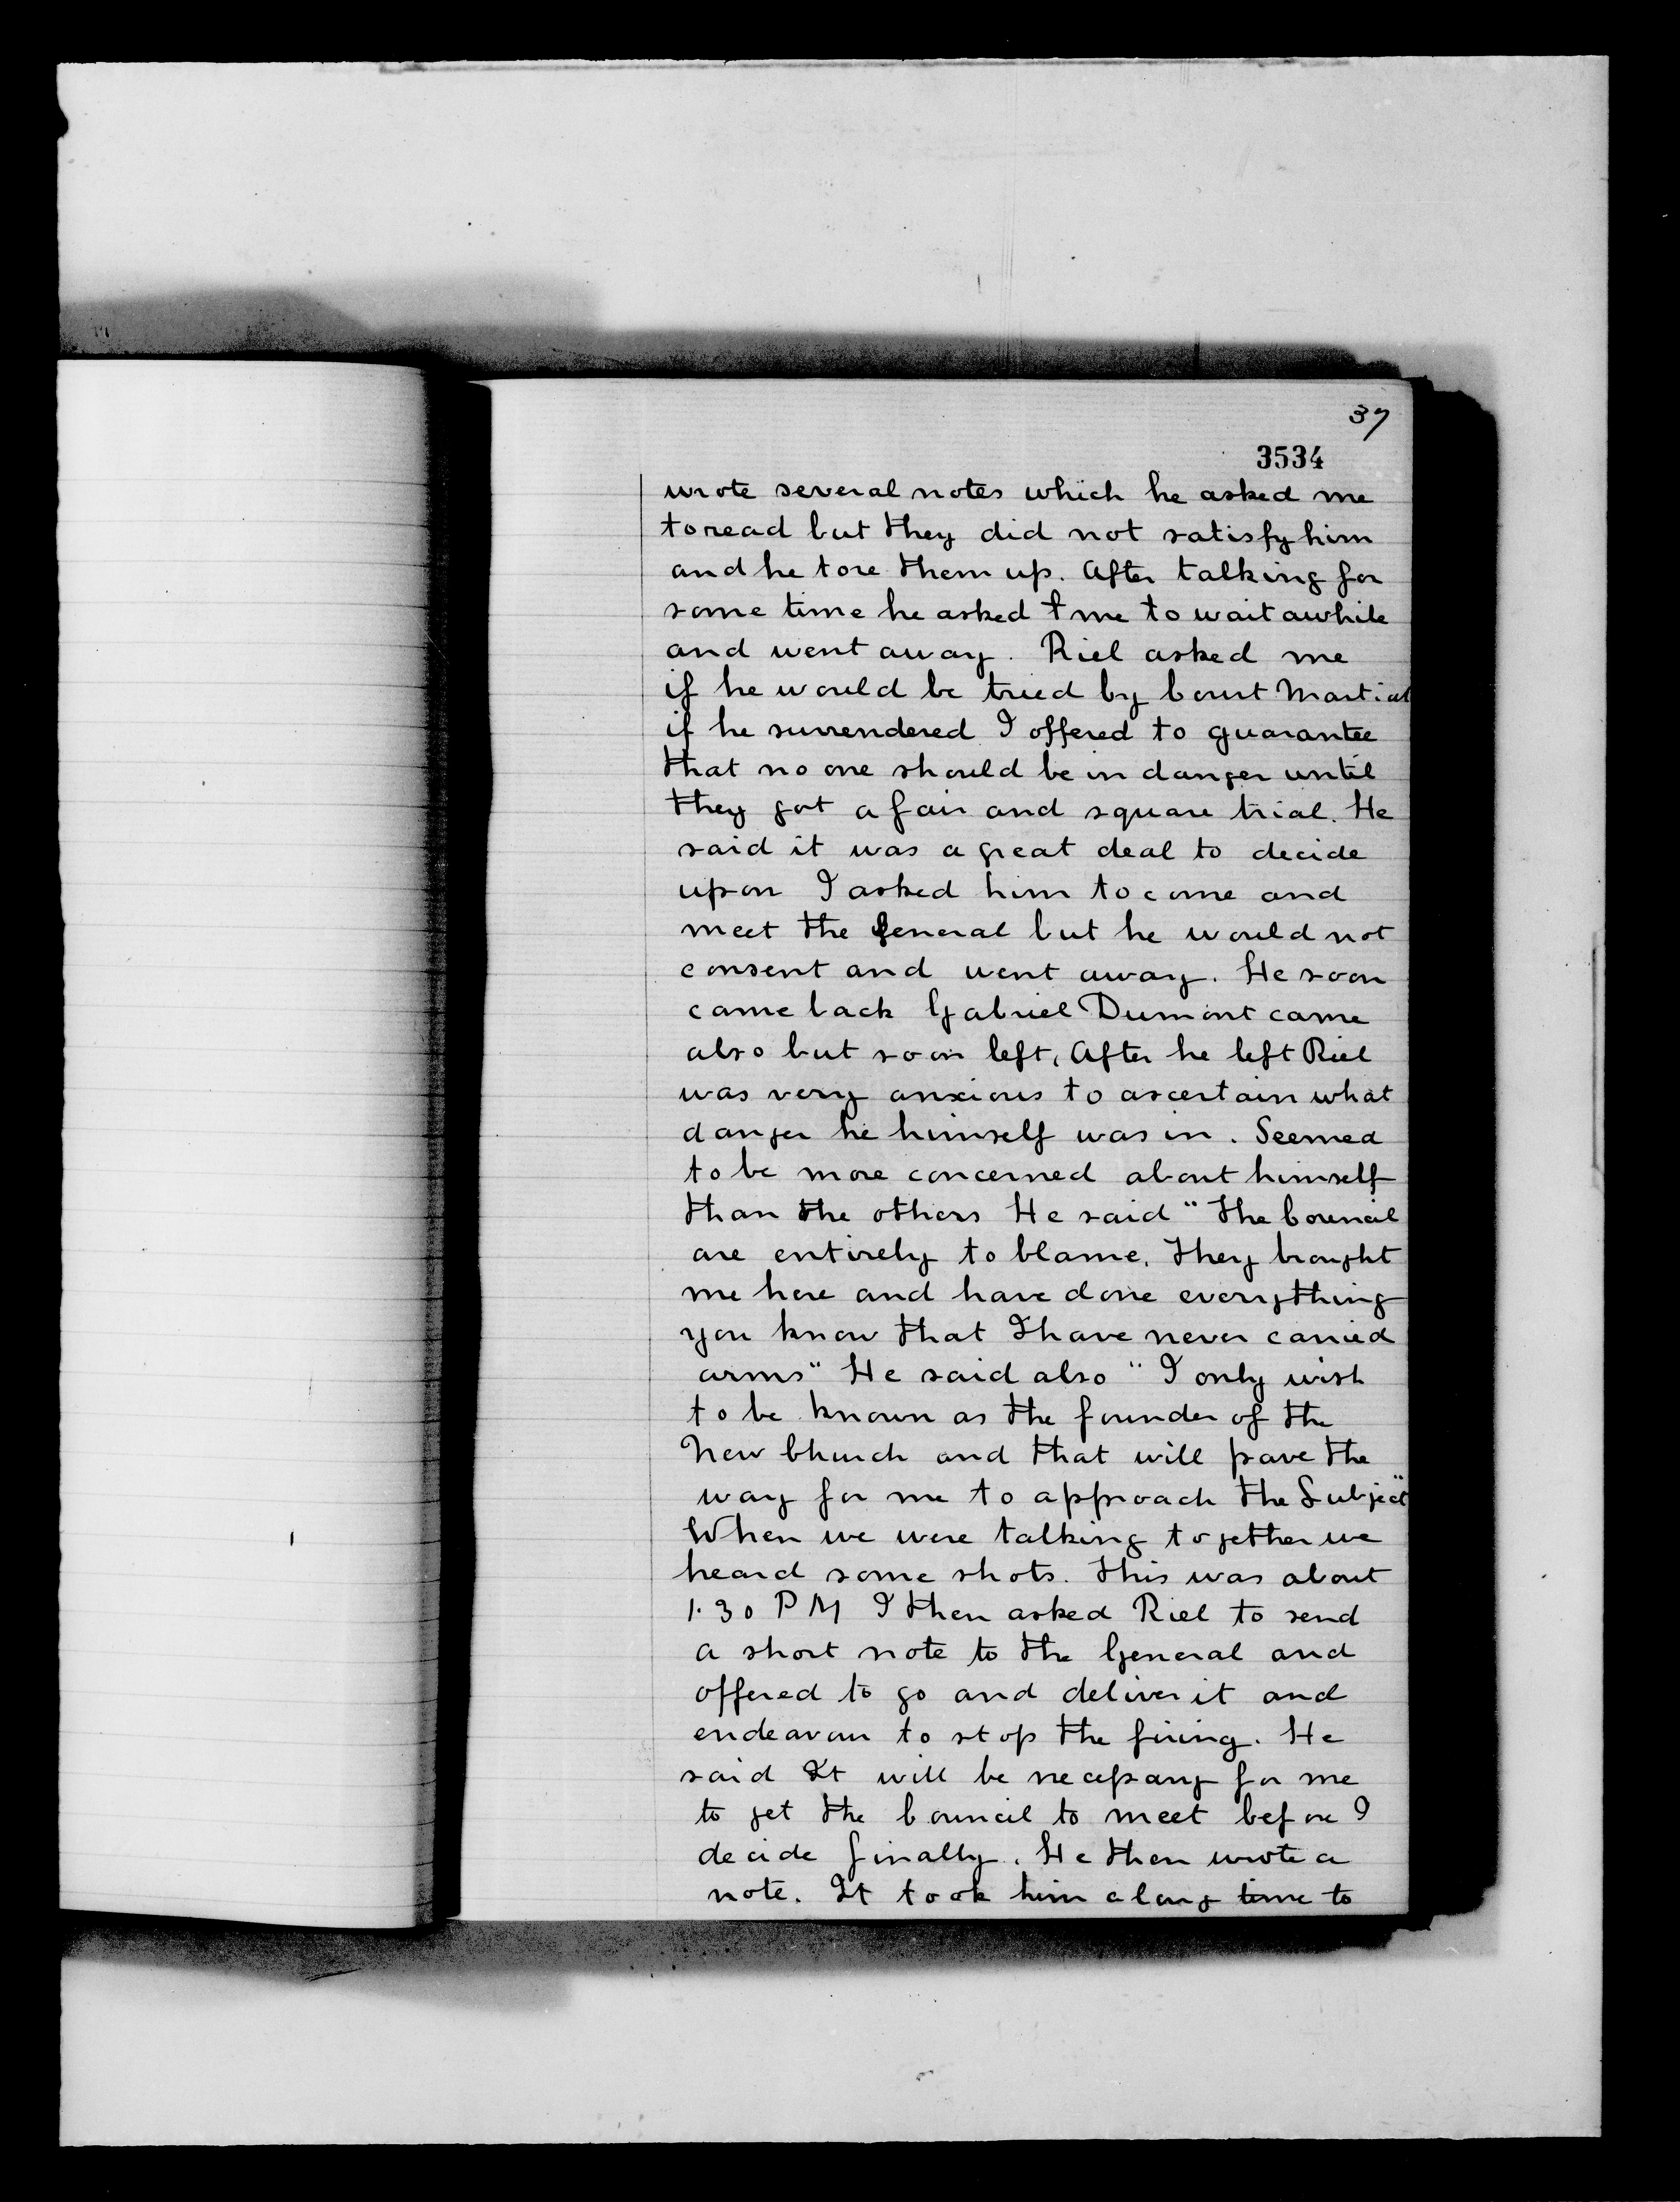 37
3534
wrote several notes which he asked me
to read but they did not satisfy him
and he tore them up. After talking for
some time he asked me to wait awhile
and went away. Riel asked me
if he would be tried by Court Martial
if he surrendered I offered to guarantee
that no one should be in danger until
they got a fair and square trial. He
said it was a great deal to decide
upon I asked him to come and
meet the General but he would not
consent and went away. He soon
came back Gabriel Dumont came
also but soon left, After he left Riel
was very anxious to ascertain what
danger he himself was in. Seemed
to be more concerned about himself
than the others He said "The Council
are entirely to blame. They brought
me here and have done everything
you know that I have never carried
arms" He said also "I only wish
to be known as the founder of the
New Church and that will pave the
way for me to approach the Subject"
When we were talking together we
heard some shots. This was about
1.30 PM I then asked Riel to send
a short note to the General and
offered to go and deliver it and
endeavour to stop the firing. He
said It will be necessary for me
to get the Council to meet before I
decide finally. He then wrote a
note. It took him a long time to